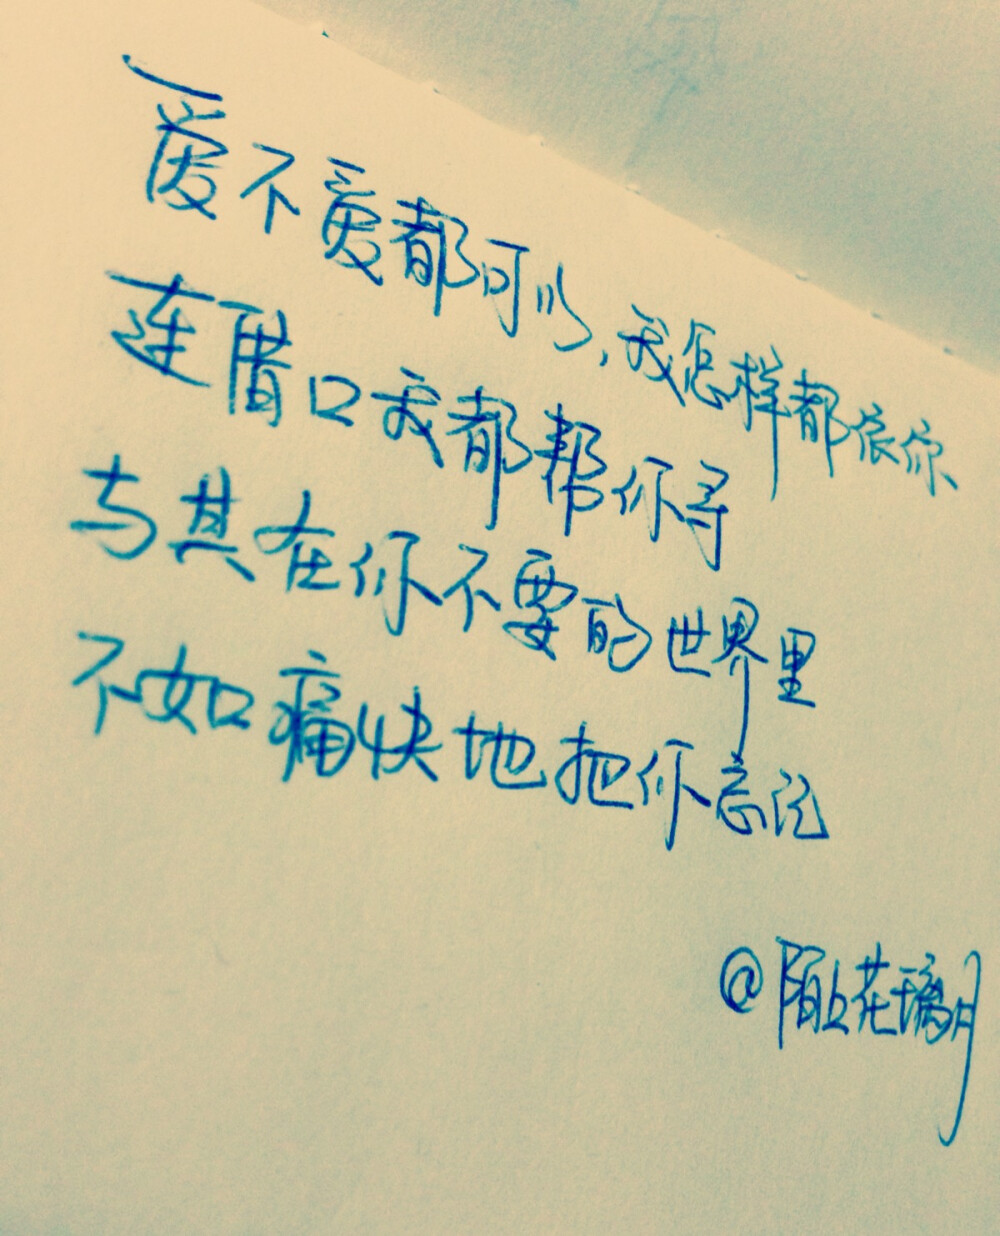 爱不爱都可以，我怎样都依你
连借口我都帮你寻
与其在你不要的世界里
不如痛快地把你忘记
@陌上花璃月